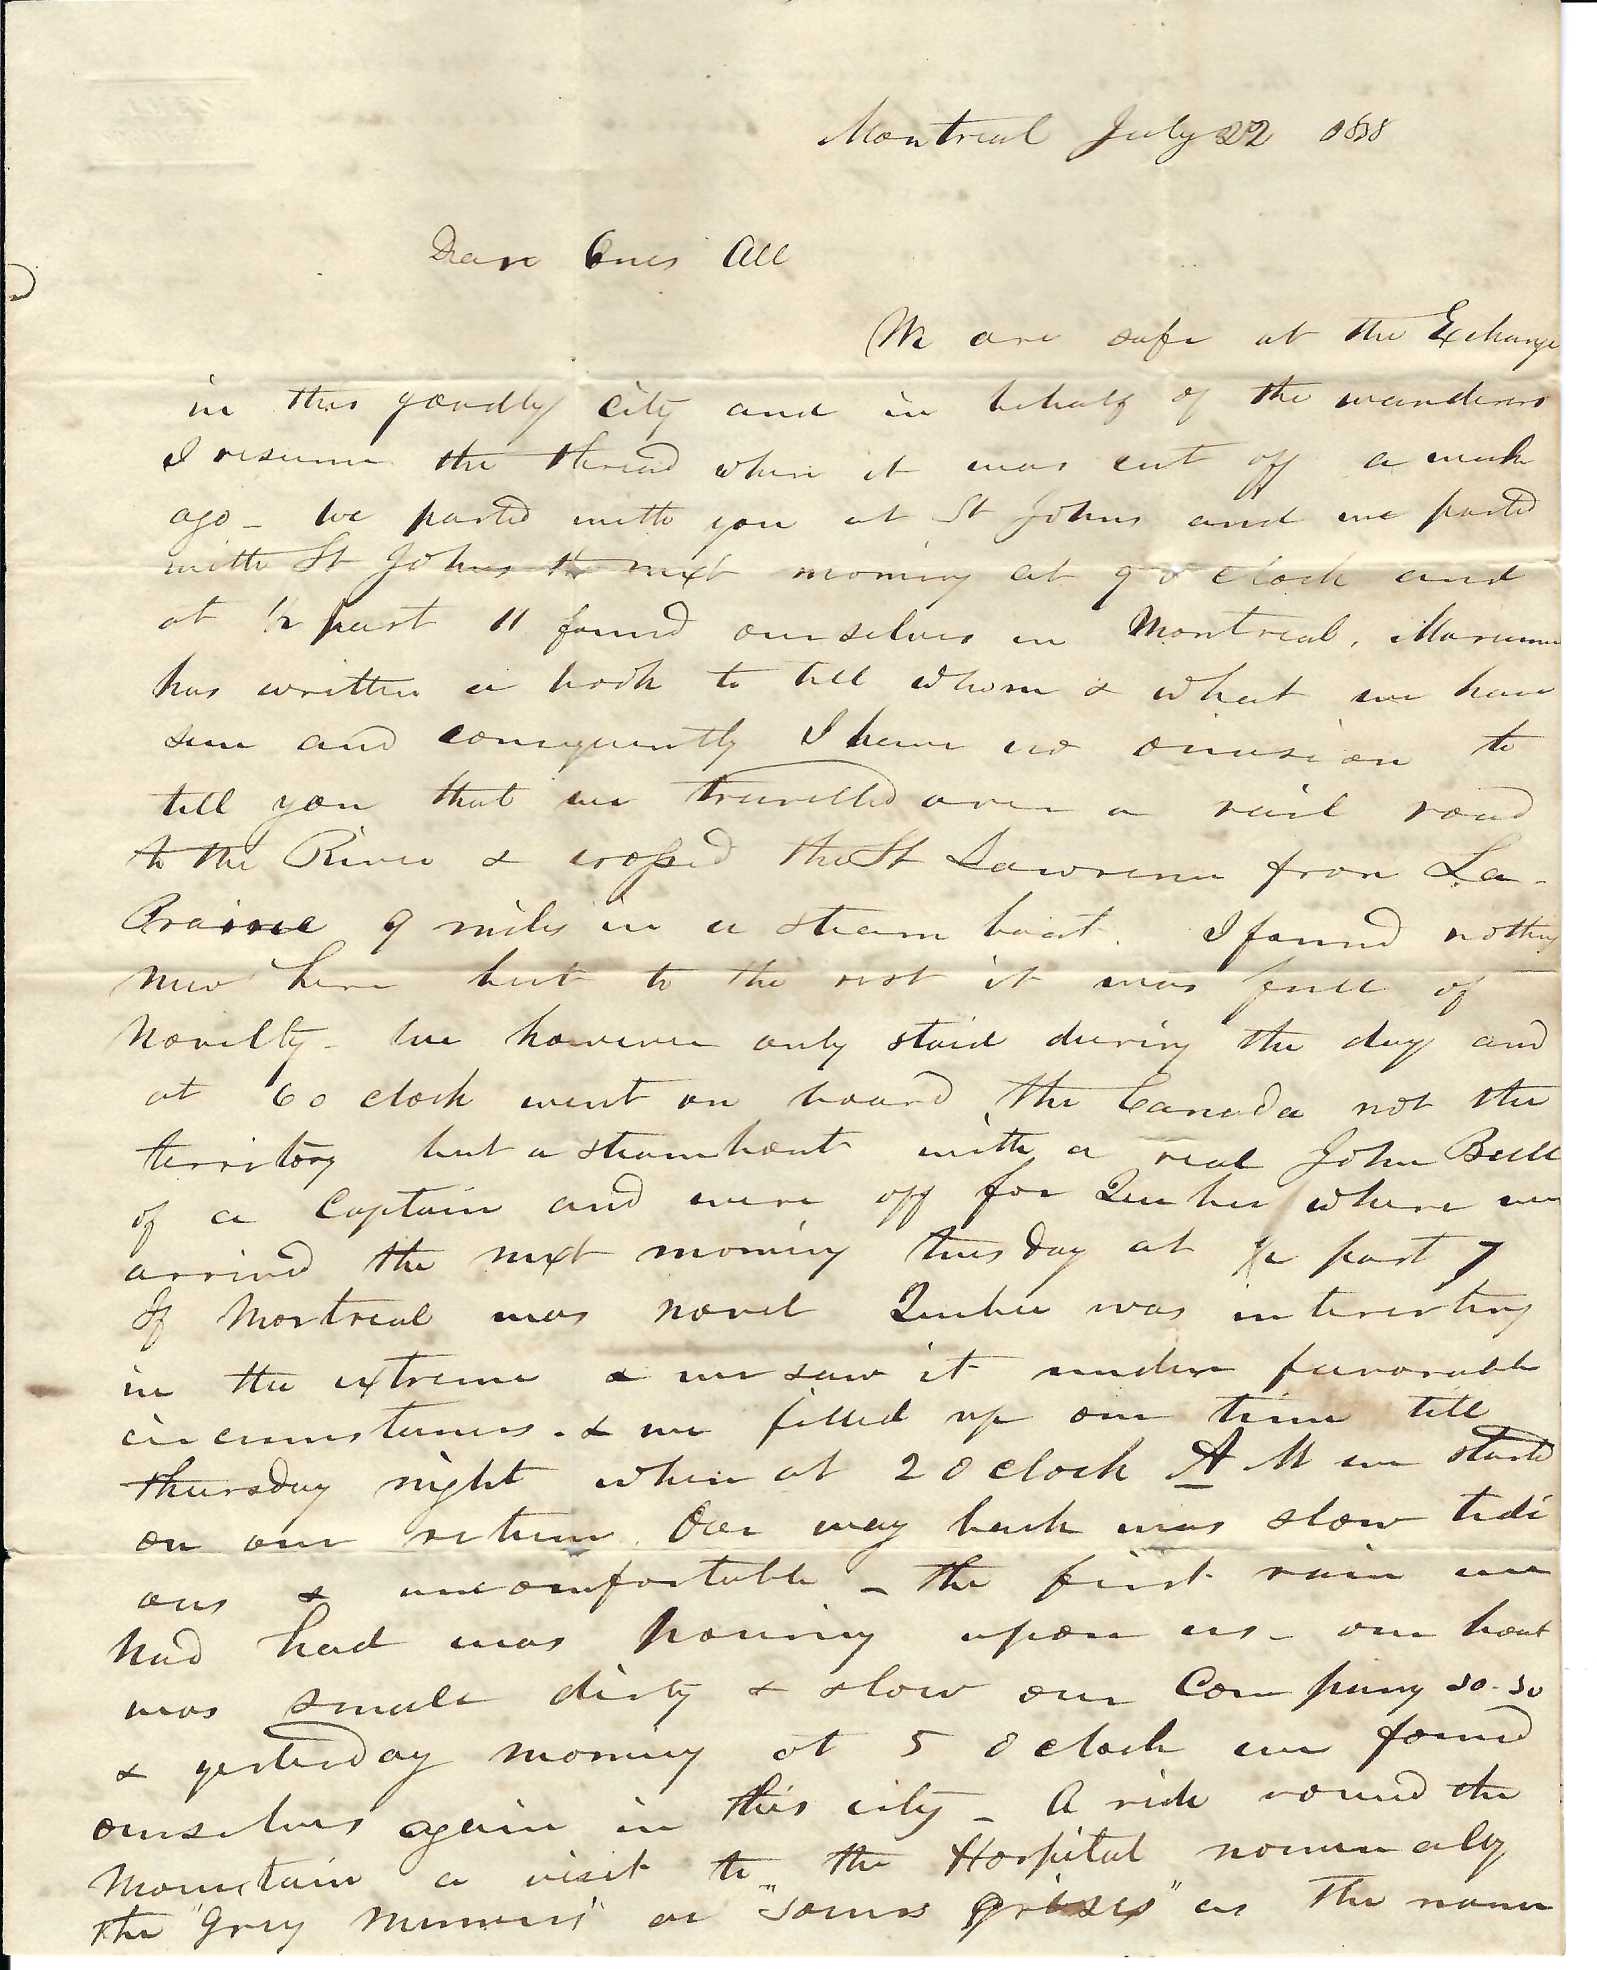 Montreal July 22 1838
Dear Ones All
We are safe at the Exchange
in this goodly city and in behalf of the wanderers
I resume the thread when it was cut off a week
ago - We parted with you at St Johns and we parted
with St Johns the next morning at 9 o clock and
at 1/2 past 11 found ourselves in Montreal.
has written a book to tell whom & what we have
seen and consequently I have no occasion to
tell you that we travelled over a rail road
to the River & crossed the St Lawrence from La-
Prairie 9 miles in a steam boat. I found nothing
new here but to the rest it was full of
Novelty - We however only staid during the day and
at 6 o clock went on board the Canada not the
territory but a steamboat with a real John Bull
of a Captain and were off for Quebec where we
arrived the next morning tuesday at 1/2 past 7
If Montreal was novel Quebec was interesting
in the extreme & we saw it under favorable
circumstances - & we filled up our time till
thursday night when at 2 o clock A M we started
on our return. Our way back was slow tedi
ous & uncomfortable - the first rain we
had had was pouring upon us - our boat
was small dirty & slow our Company so-so
& yesterday morning at 5 o clock we found
ourselves again in this city - A ride round the
Mountain a visit to the Hospital nominaly
the "Grey Nunnery" or "Sours grises" as the name